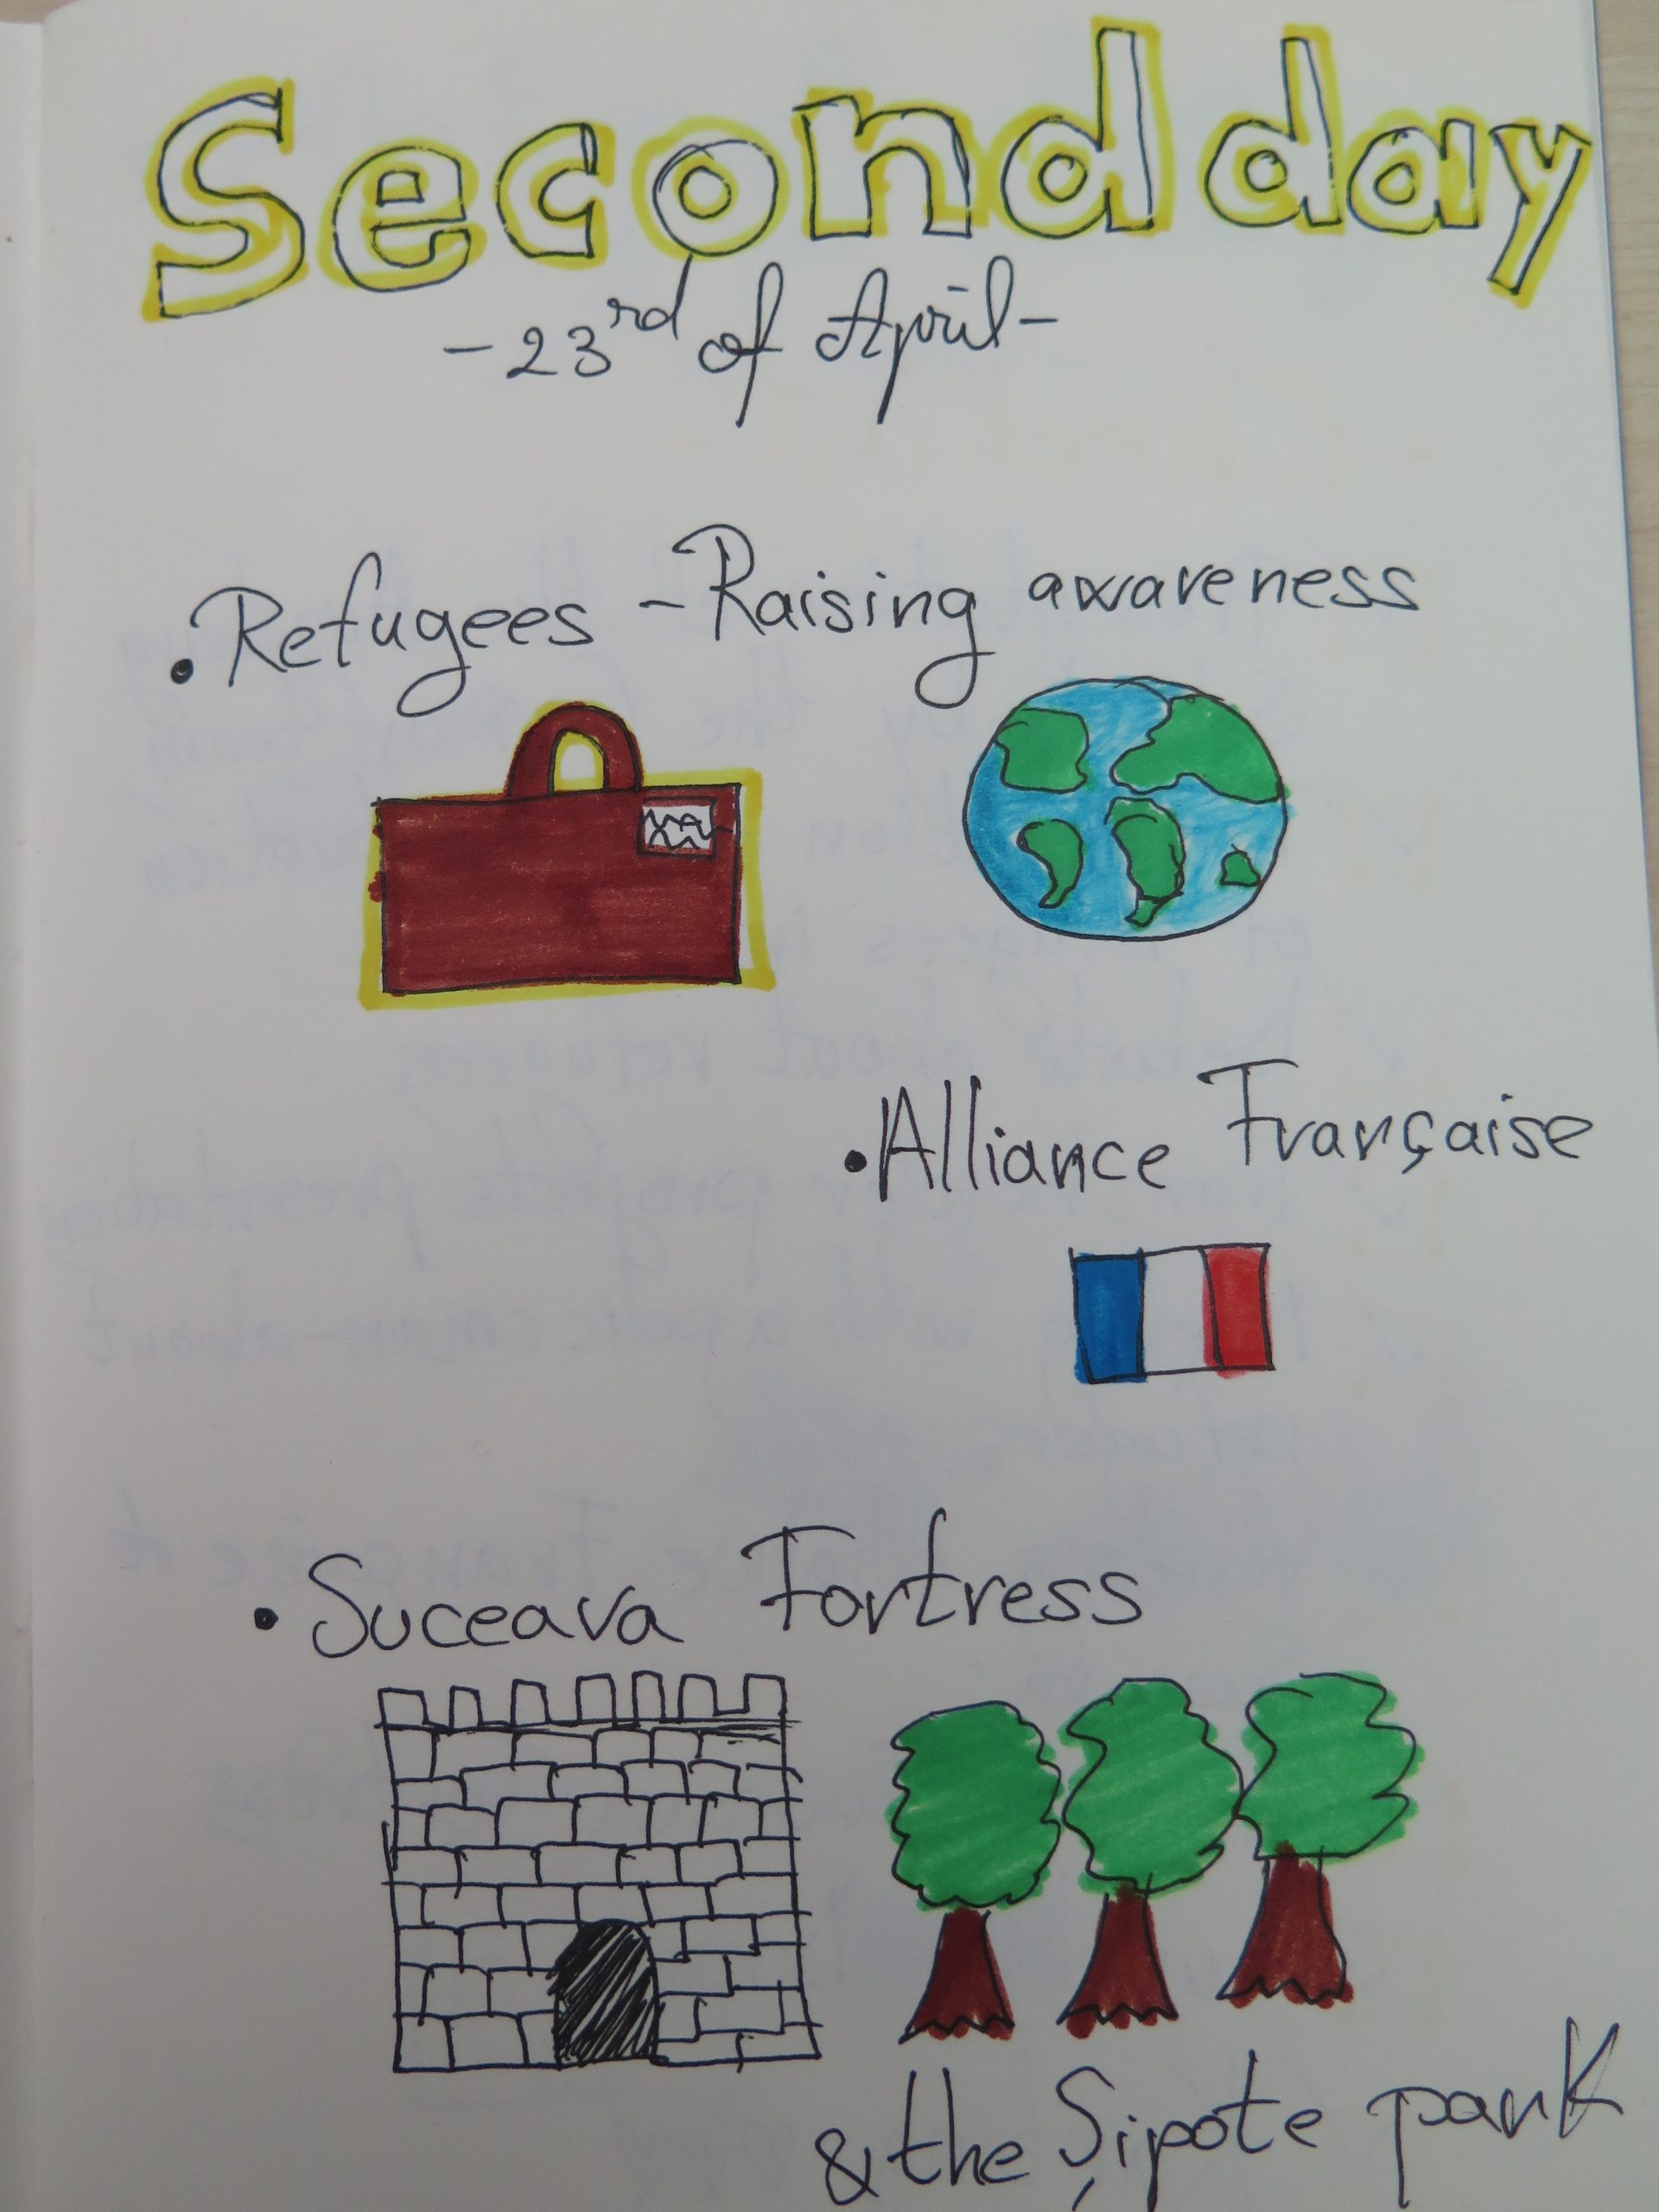 Second day
-23rd of April-
• Refugees - Raising awareness
• Alliance Française
• Suceava Fortress
& the Șipote park